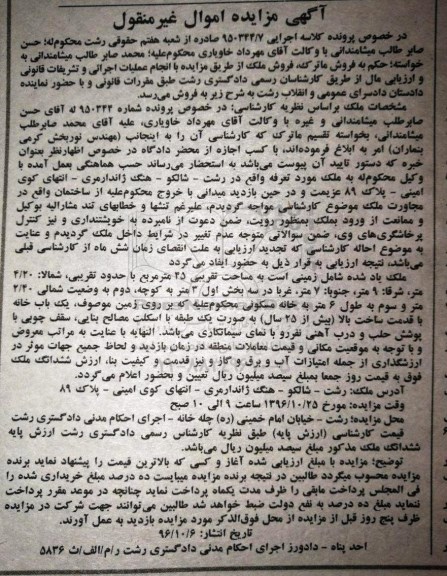 آگهی مزایده اموال غیرمنقول
در خصوص پرونده کلاسه اجرایی ۹۵۰۳۴۴/۷ صادره از شعبه هفتم حقوقی رشت محکوم‌له؛ حسن
صابر طالب میشامندانی با وکالت آقای مهرداد خاوباری محکوم‌علیه؛ محمد صابر طالب میشامندانی به
خواسته؛ حکم به فروش ماترک، فروش ملک از طریق مزایده با انجام عملیات اجرائی و تشریفات قانونی
و ارزیابی مال از طریق کارشناسان رسمی دادگستری رشت طبق مقررات قانونی و با حضور نماینده
دادستان دادسرای عمومی و انقلاب رشت به شرح زیر به فروش می‌رسد.
مشخصات ملک براساس نظریه کارشناسی: در خصوص پرونده شماره ۹۵۰۳۴۴ له آقای حسن
صابرطلب میشامندانی و غیره با وکالت آقای مهرداد خاوباری، علیه آقای محمد صابرطلب
میشامندانی، بخواسته تقسیم ماترک که کارشناسی آن را به اینجانب (مهندس نوربخش کرمی
بنماران) امر به ابلاغ فرموده‌اند، با کسب اجازه از محضر دادگاه در خصوص اظهارنظر بعنوان
خبره که دستور تایید آن پیوست می‌باشد به استحضار می‌رساند حسب هماهنگی بعمل آمده با
وکیل محکوم‌له به ملک مورد تعرفه واقع در رشت - شالکو - هنگ ژاندارمری - انتهای کوی
امینی - پلاک ۸۹ عزیمت و در حین بازدید میدانی با خروج محکوم‌علیه از ساختمان واقع در
مجاورت ملک موضوع کارشناسی مواجه گردیدم، علیرغم تنشها و خطابهای تند مشارالیه بوکیل
و ممانعت از ورود بملک بمنظور رویت، ضمن دعوت از نامبرده به خویشتنداری و نیز کنترل
پرخاشگری‌های وی، ضمن سوالاتی متوجه عدم تغییر در شرایط داخل ملک گردیدم و عنایت
به موضوع احاله کارشناسی که تجدید ارزیابی به علت انقضای زمان شش ماه از کارشناسی قبلی
می‌باشد، نتیجه ارزیابی به قرار ذیل به حضور ایفاد می‌گردد
ملک یاد شده شامل زمینی است به مساحت تقریبی ۴۵ مترمربع با حدود تقریبی، شمالا: ۴/۲۰
متر، شرقا: ۹ متر، جنوبا: ۷ متر، غربا در سه بخش اول ۳ متر به کوچه، دوم به وضعیت شمالی ۲/۴۰
متر و سوم به طول ۶ متر به خانه مسکونی محکوم‌علیه که بر روی زمین موصوف، یک باب خانه
با قدمت ساخت بالا (بیش از ۲۵ سال) به صورت یک طبقه با اسکلت مصالح بنایی، سقف چوبی با
پوشش حلب و درب آهنی نفررو با نمای سیمانکاری می‌باشد. النهایه با عنایت به مراتب معروض
و با توجه به موقعیت مکانی و قیمت معاملات منطقه در زمان بازدید و لحاظ جمیع جهات موثر در
ارزشگذاری از جمله امتیازات آب و برق و گاز و نیز قدمت و کیفیت بنا، ارزش ششدانگ ملک
فوق به قیمت روز جمعا بمبلغ سیصد میلیون ریال تعیین و بحضور اعلام می‌گردد.
آدرس ملک: رشت - شالکو - هنگ ژاندارمری - انتهای کوی امینی - پلاک ۸۹
وقت مزایده: مورخ ۱۳۹۶/۱۰/۲۵ ساعت ۹ الی ۱۰ صبح
محل مزایده؛ رشت - خیابان امام خمینی (ره) چله خانه - اجرای احکام مدنی دادگستری رشت
قیمت کارشناسی (ارزش پایه) طبق نظریه کارشناس رسمی دادگستری رشت ارزش پایه
ششدانگ ملک مذکور مبلغ سیصد میلیون ریال می‌باشد.
توضیح؛ مزایده با مبلغ ارزیابی شده آغاز و کسی که بالاترین قیمت را پیشنهاد نماید برنده
مزایده محسوب میگردد طالبین در نتیجه برنده مزایده میبایست ده درصد مبلغ خریداری شده را
فی المجلس پرداخت مابقی را ظرف مدت یکماه پرداخت نماید چنانچه در موعد مقرر پرداخت
ننماید مبلغ ده درصد به نفع دولت ضبط خواهد شد طالبین می‌توانند جهت شرکت در مزایده
ظرف پنج روز قبل از مزایده از محل فوق‌الذکر مورد مزایده بازدید به عمل آورند.
تاریخ انتشار: ۹۶/۱۰/۶
احد پناه - دادورز اجرای احکام مدنی دادگستری رشت ر/م/الف/ث ۵۸۳۶